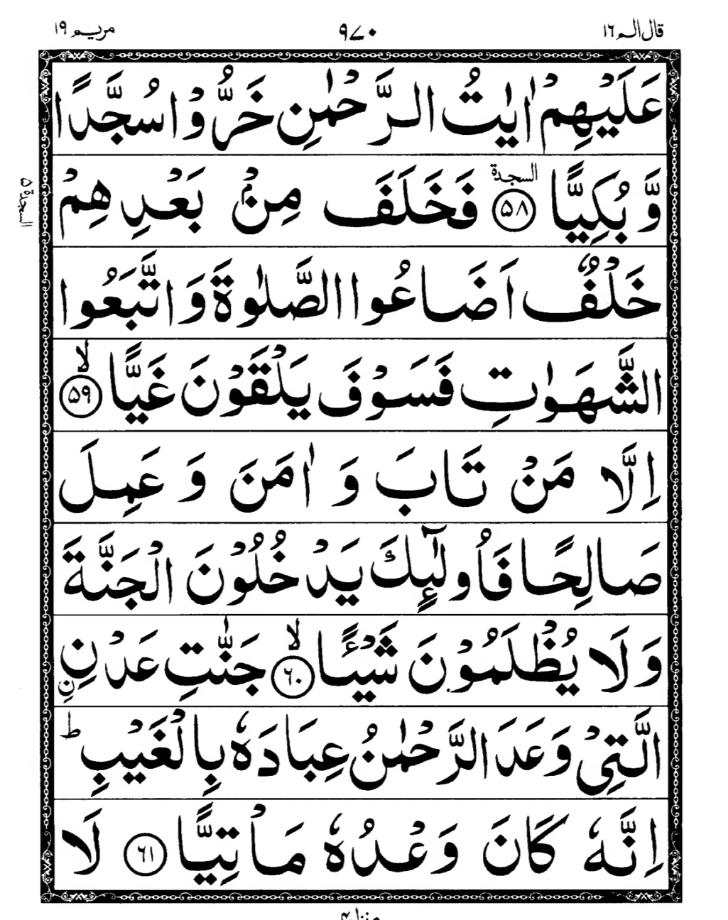 قال الم ١٦
٩٧٠
مریم ١٩
عَلَيْهِمْ اٰيٰتُ الرَّحْمٰنِ خَرُّوْا سُجَّدًا
وَّ بُكِيًّا ۝٥٨ السجدة فَخَلَفَ مِنْۢ بَعْدِهِمْ
السجدة ٥
خَلْفٌ اَضَاعُوا الصَّلٰوةَ وَاتَّبَعُوا
الشَّهَوٰتِ فَسَوْفَ يَلْقَوْنَ غَيًّا ۝٥٩ۙ
اِلَّا مَنْ تَابَ وَ اٰمَنَ وَ عَمِلَ
صَالِحًا فَاُولٰٓئِكَ يَدْخُلُوْنَ الْجَنَّةَ
وَلَا يُظْلَمُوْنَ شَيْـًٔا ۝٦٠ۙ جَنّٰتِ عَدْنِ ن
الَّتِیْ وَعَدَ الرَّحْمٰنُ عِبَادَهٗ بِالْغَيْبِ ؕ
اِنَّهٗ كَانَ وَعْدُهٗ مَاْتِيًّا ۝٦١ لَا
منزل ٤